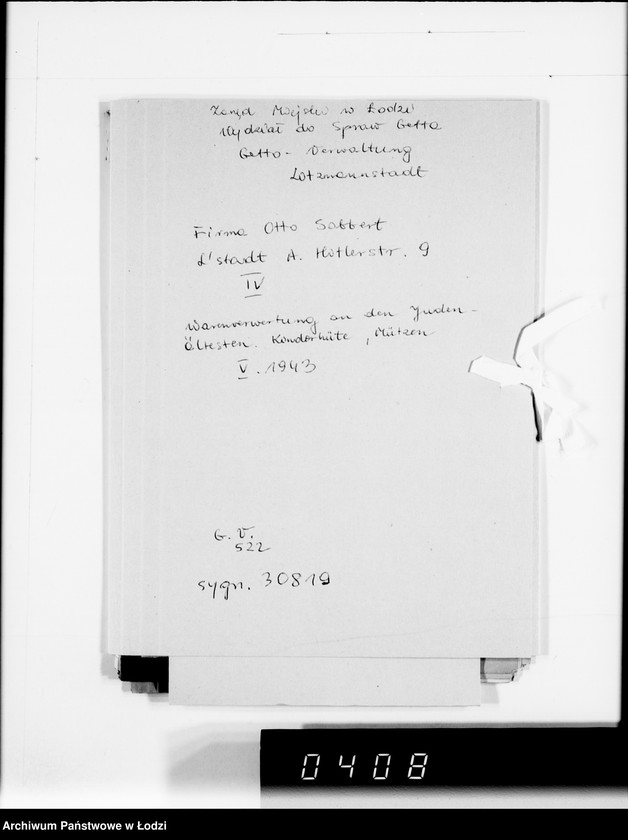 Zarząd Miejski w Łodzi
Wydział do Spraw Getta
Getto - Verwaltung
Litzmannstadt
Firma Otto Sabbert
L'stadt A. Hitlerstr. 9
IV
Warenverwertung an den Juden-
Ältesten. Kinderhüte, Mützen
V. 1943
G. V.
522
sygn. 30819
0408
Archiwum Państwowe w Łodzi